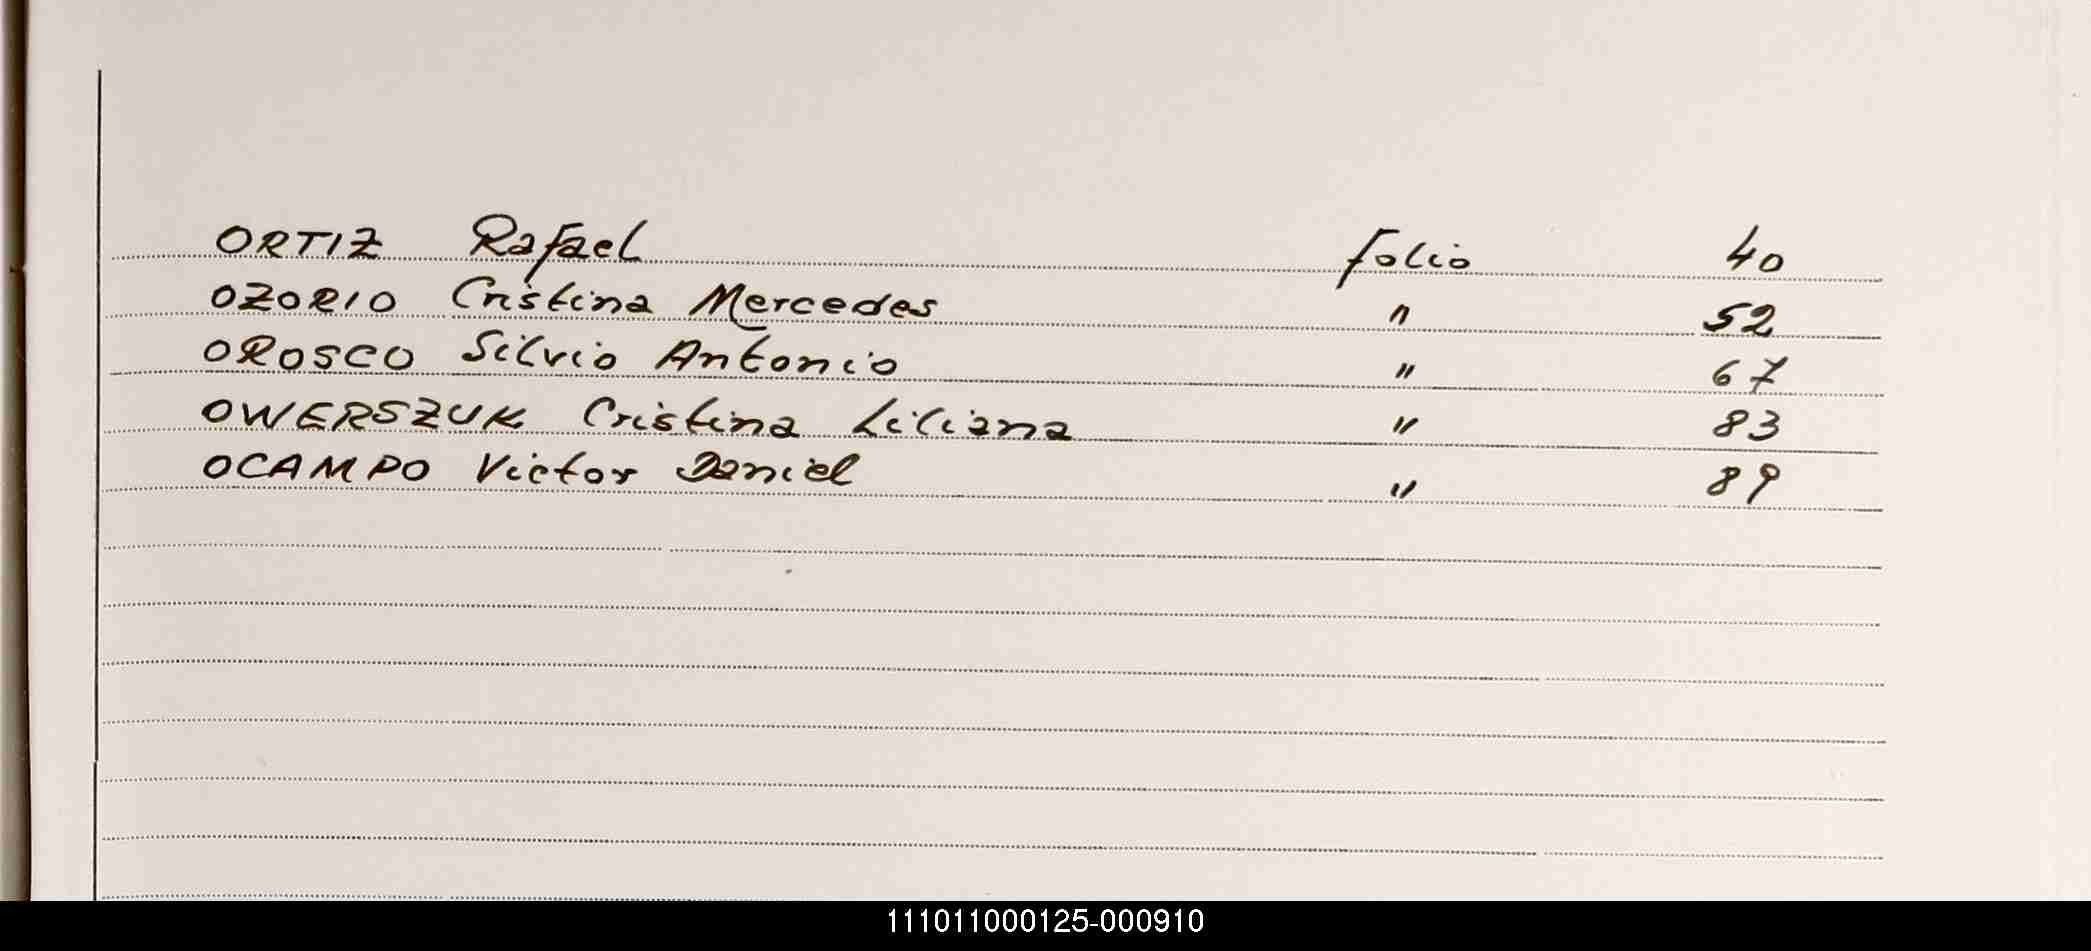 ORTIZ Rafael folio 40
OZORIO Cristina Mercedes " 52
OROSCO Silvio Antonio " 67
OWERSZUK Cristina Liliana " 83
OCAMPO Victor Daniel " 89
111011000125-000910